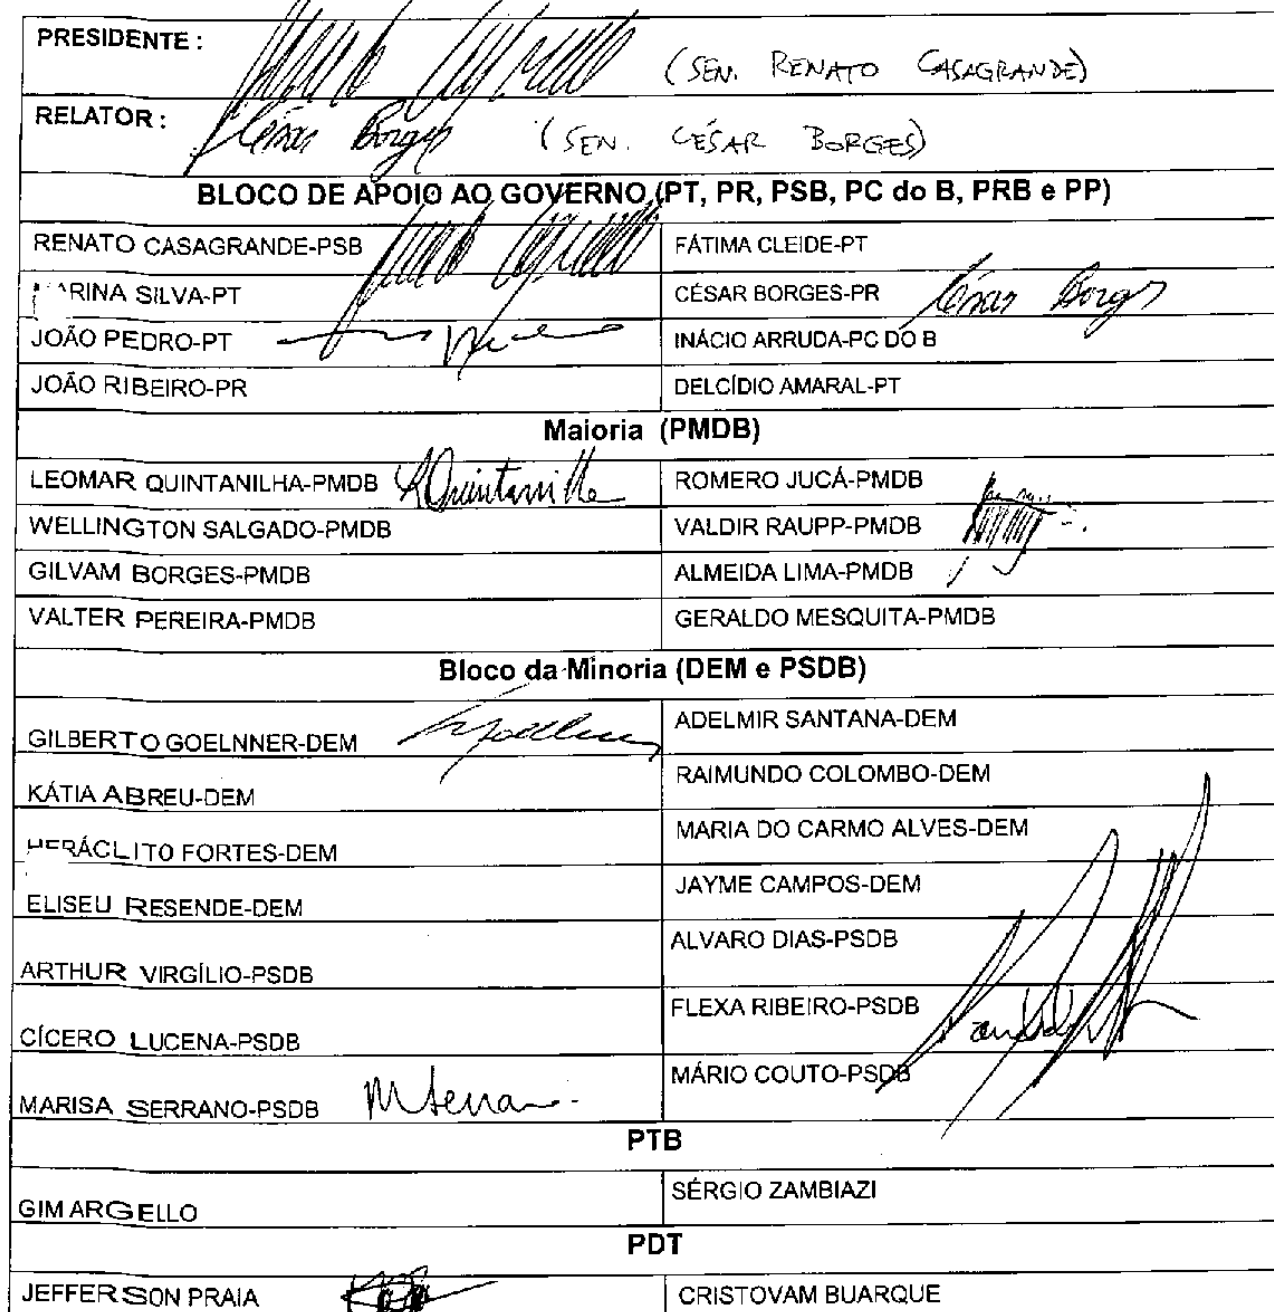 PRESIDENTE : (SEN. RENATO CASAGRANDE)
RELATOR : César Borges (SEN. CÉSAR BORGES)
BLOCO DE APOIO AO GOVERNO (PT, PR, PSB, PC do B, PRB e PP)
RENATO CASAGRANDE-PSB
FÁTIMA CLEIDE-PT
MARINA SILVA-PT
CÉSAR BORGES-PR César Borges
JOÃO PEDRO-PT
INÁCIO ARRUDA-PC DO B
JOÃO RIBEIRO-PR
DELCÍDIO AMARAL-PT
Maioria (PMDB)
LEOMAR QUINTANILHA-PMDB LQuintanilha
ROMERO JUCÁ-PMDB
WELLINGTON SALGADO-PMDB
VALDIR RAUPP-PMDB
GILVAM BORGES-PMDB
ALMEIDA LIMA-PMDB
VALTER PEREIRA-PMDB
GERALDO MESQUITA-PMDB
Bloco da Minoria (DEM e PSDB)
GILBERTO GOELNNER-DEM
ADELMIR SANTANA-DEM
KÁTIA ABREU-DEM
RAIMUNDO COLOMBO-DEM
HERÁCLITO FORTES-DEM
MARIA DO CARMO ALVES-DEM
ELISEU RESENDE-DEM
JAYME CAMPOS-DEM
ARTHUR VIRGÍLIO-PSDB
ALVARO DIAS-PSDB
CÍCERO LUCENA-PSDB
FLEXA RIBEIRO-PSDB
MARISA SERRANO-PSDB
MÁRIO COUTO-PSDB
PTB
GIM ARGELLO
SÉRGIO ZAMBIAZI
PDT
JEFFERSON PRAIA
CRISTOVAM BUARQUE